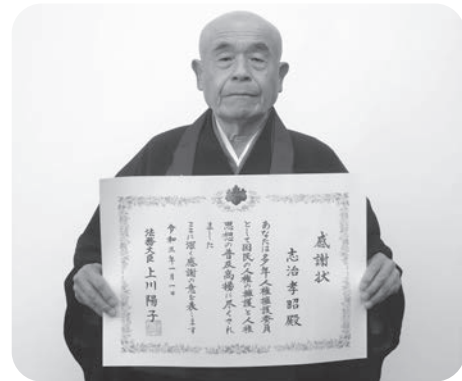 感謝状
志治孝昭殿
あなたは多年人権擁護委員
として国民の人権の擁護と人権
思想の普及高揚に尽くされ
ました
ここに深く感謝の意を表します
令和三年一月一日
法務大臣 上川陽子